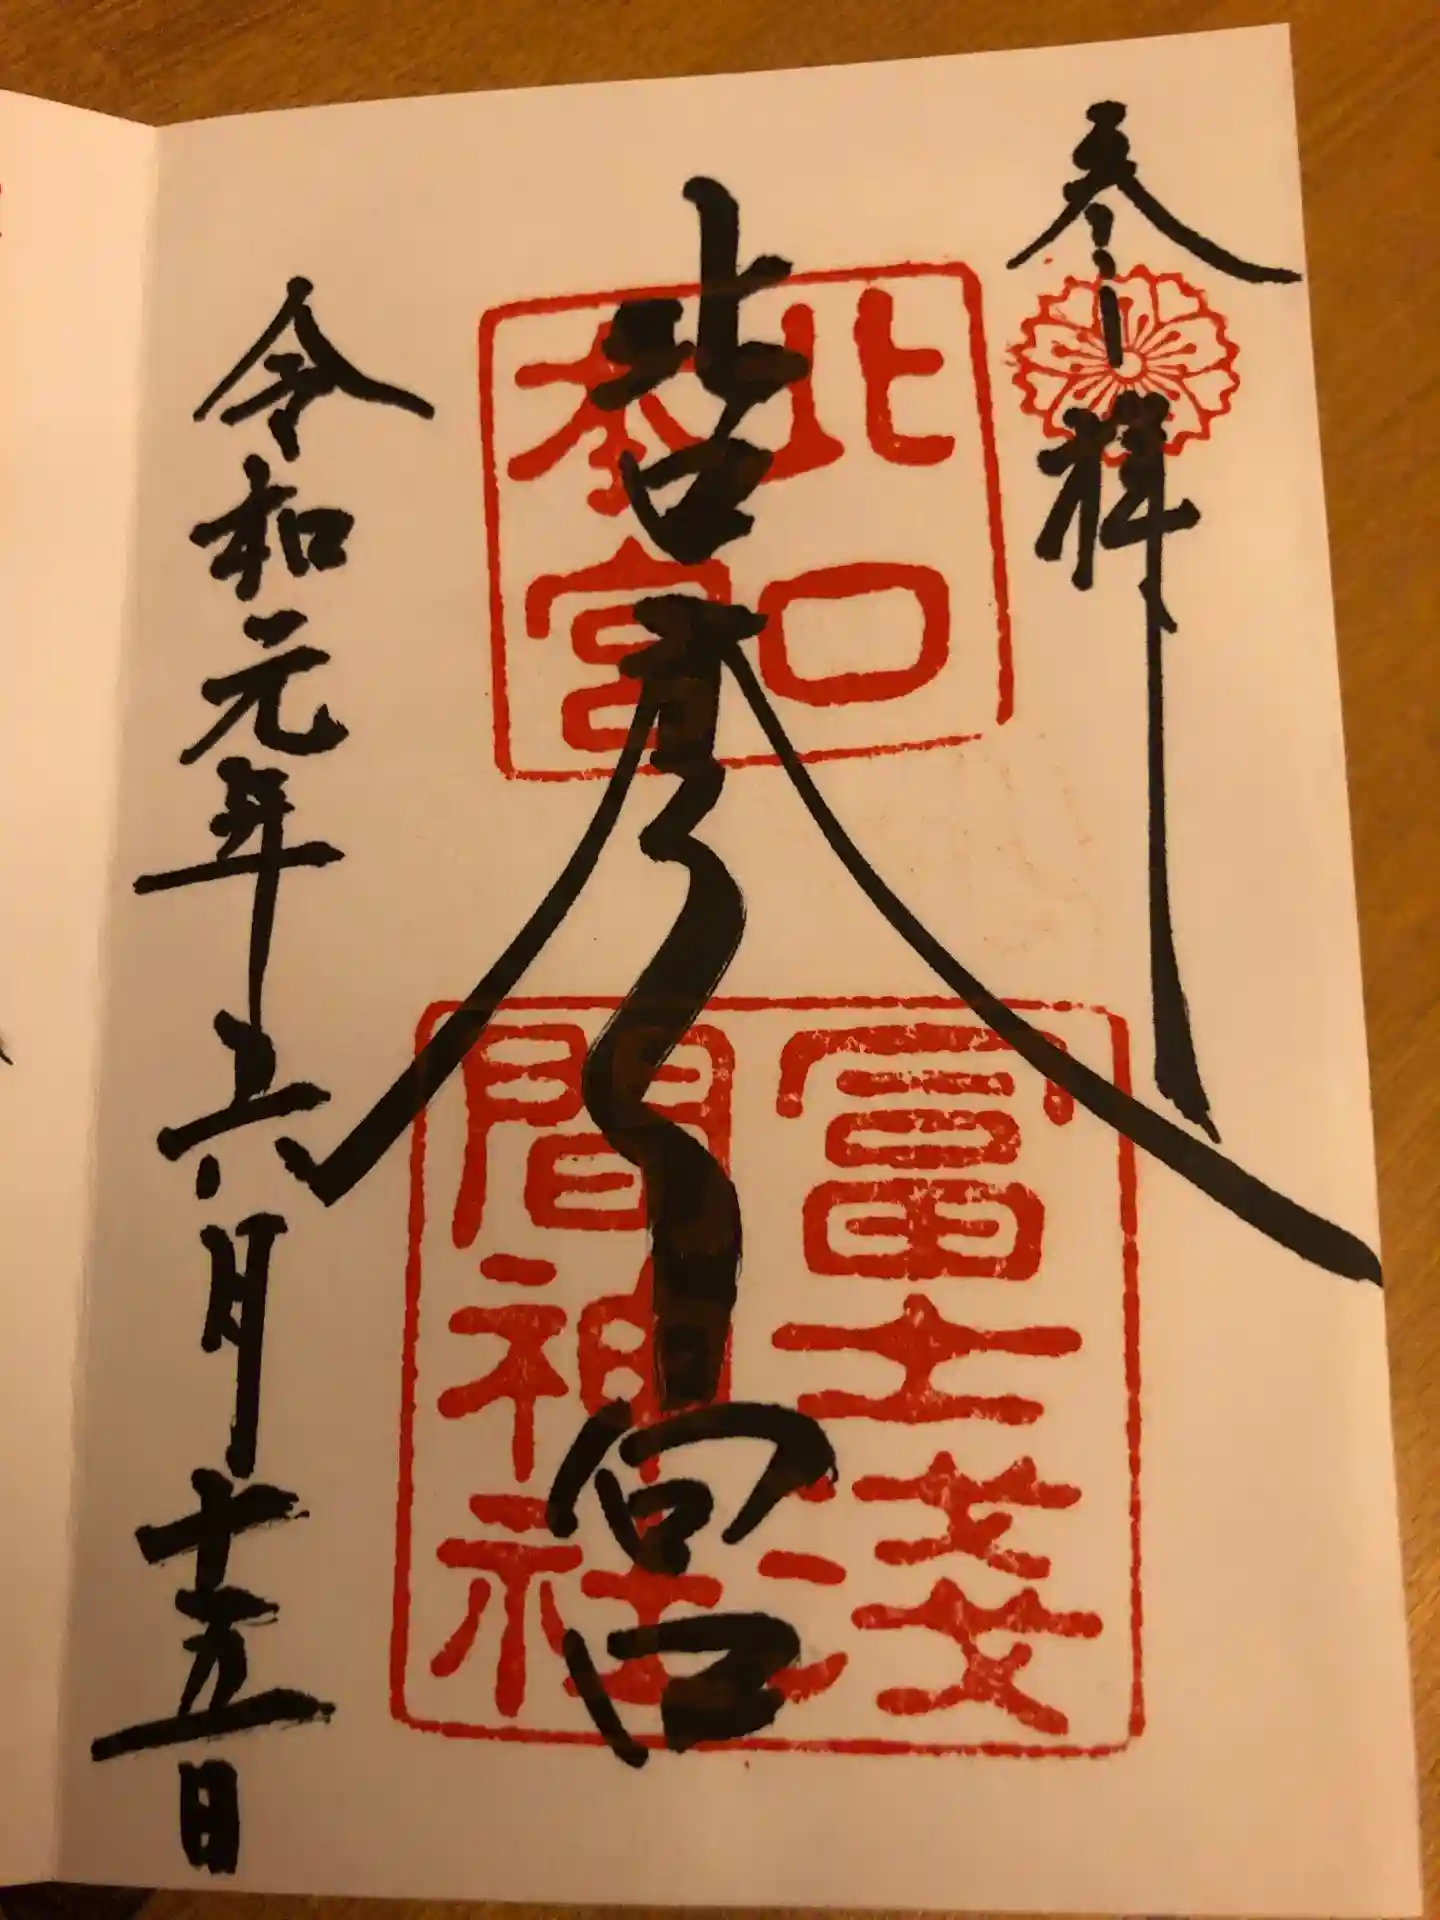 奉拝
北口本宮
令和元年六月十五日
北口
本宮
冨士淺
間神社